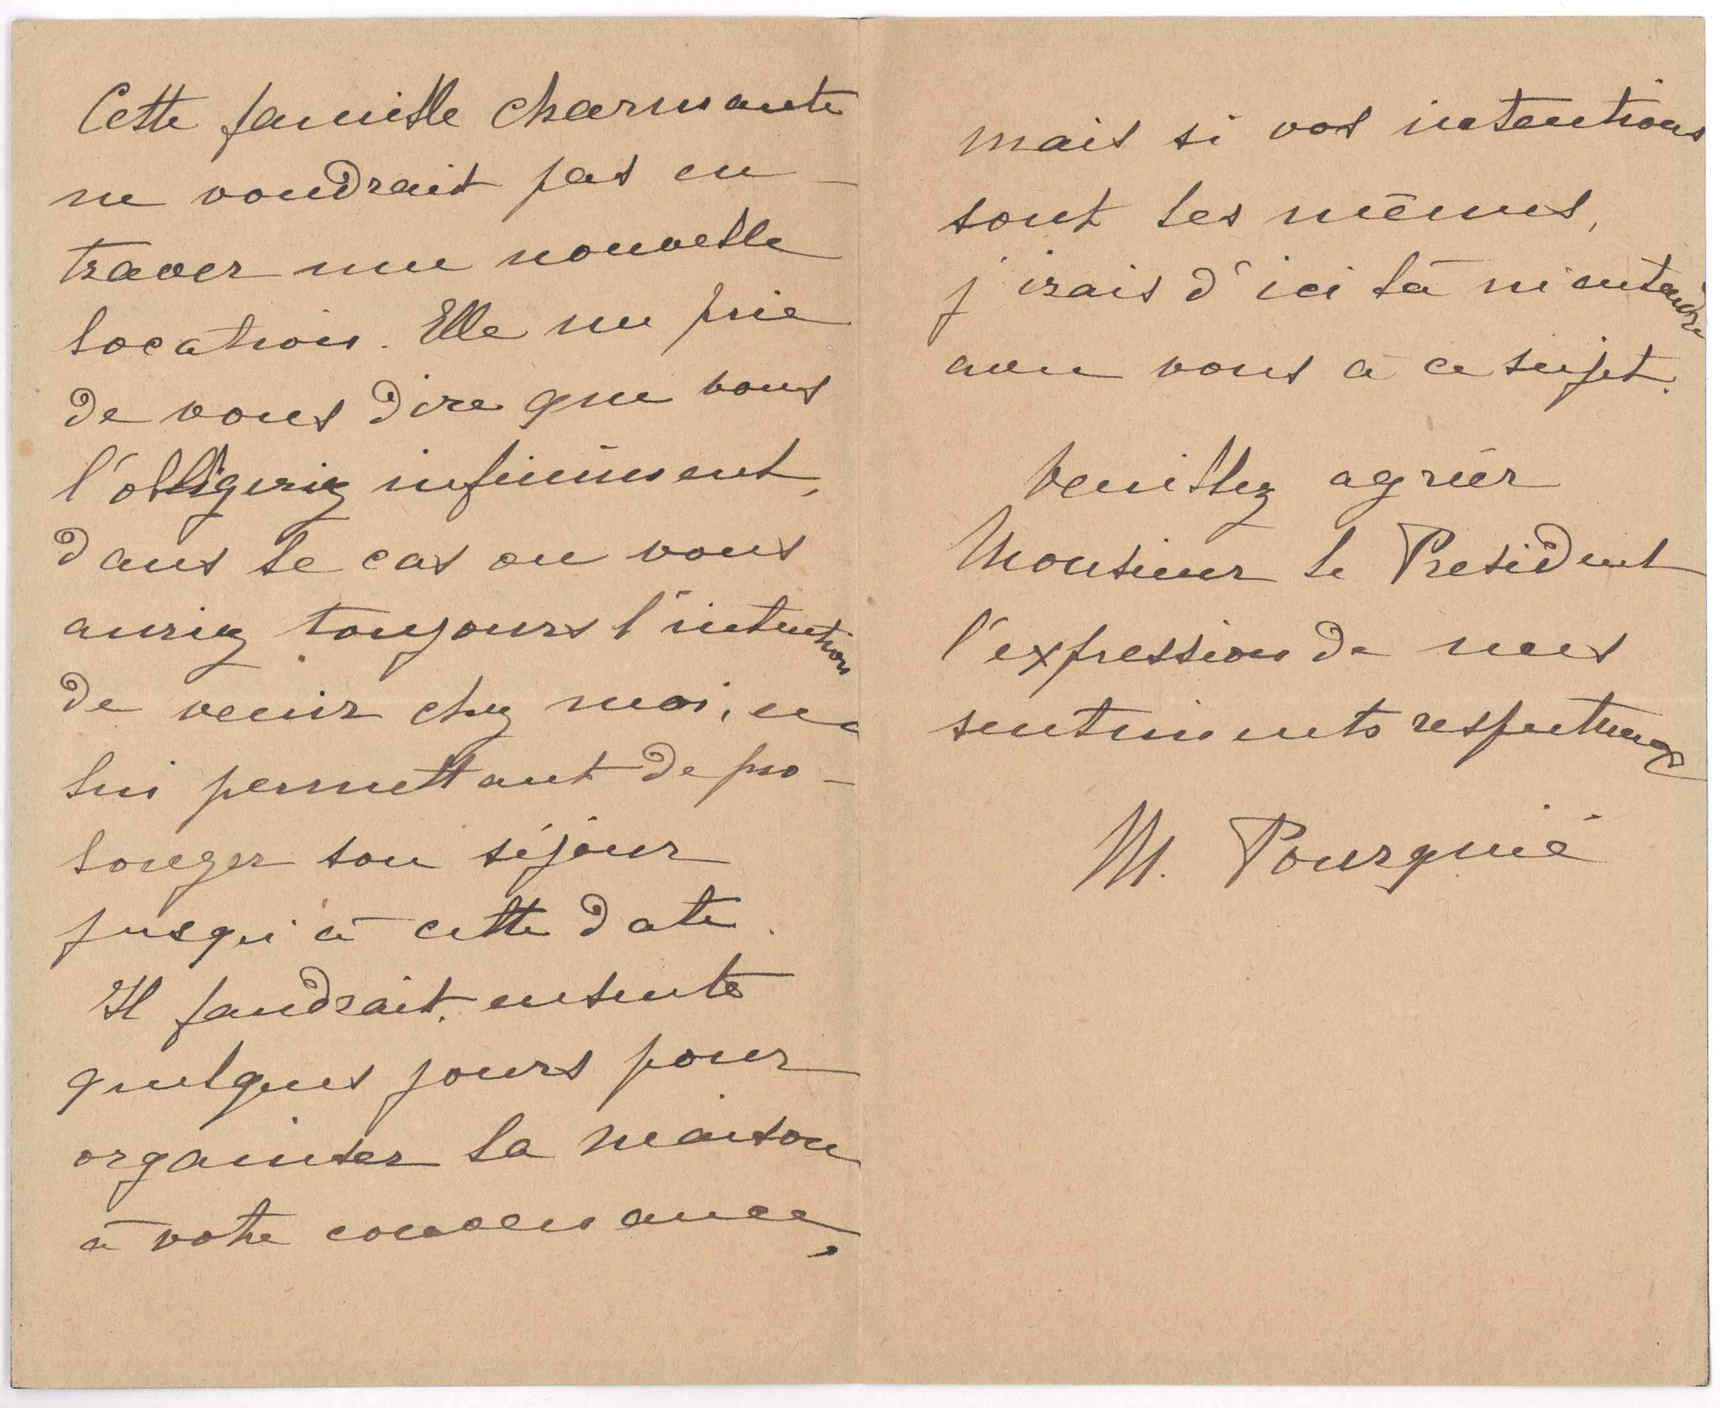 Cette famille charmante
ne voudrait pas en-
traver une nouvelle
location. Elle me prie
de vous dire que vous
l'obligeriez infiniment,
dans le cas ou vous
auriez toujours l'intention
de venir chez moi, en
lui permettant de pro-
longer son séjour
jusqu'à cette date.
Il faudrait, ensuite
quelques jours pour
organiser la maison
à votre convenance,
mais si vos intentions
sont les mêmes,
j'irais d'ici là m'entendre
avec vous à ce sujet.
Veuillez agréer
Monsieur le President
l'expression de mes
sentiments respectueux
M. Pourquié